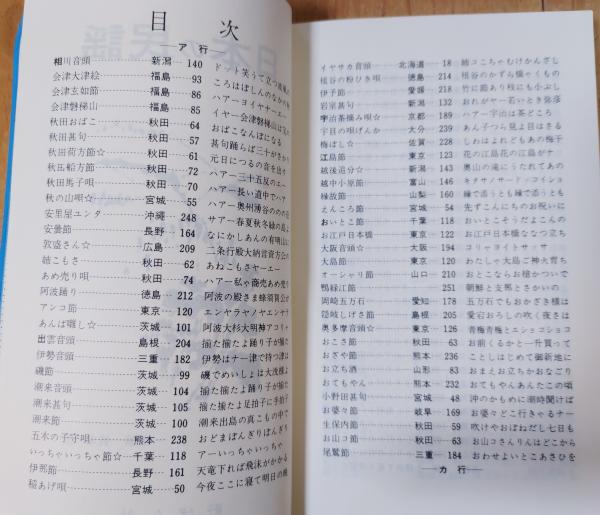 目次
―ア行―
相川音頭 新潟 140 ドット笑うて立つ浪風
会津大津絵 福島 93 ころはばしんの
会津玄如節 福島 86 ハアーヨイヤサーエー
会津磐梯山 福島 85 イヤー会津磐梯山は宝
秋田おばこ 秋田 64 おばこなんぼになる
秋田甚句 秋田 57 甚句踊らば三十が
秋田荷方節☆ 秋田 61 元日につるの音を出す
秋田船方節 秋田 72 ハアー三十五反のエー
秋田馬子唄 秋田 70 ハアー長い道中でハア
秋の山唄☆ 宮城 55 ハアー奥州湧谷のの
安里屋ユンタ 沖縄 248 サアー春夏秋冬緑の島
安曇節 長野 164 なにかしあんの有明山に
敦盛さん☆ 広島 209 二条行殿大納言資方公の
姉こもさ 秋田 62 あねこもさヤーエー
あめ売り唄 秋田 74 ハアー私や商売あめ売り
阿波踊り 徳島 212 阿波の殿さま蜂須賀公が
アンコ節 東京 120 エンヤラヤノヤエンヤラ
あんば囃し☆ 茨城 101 阿波大杉大明神アコリャ
出雲音頭 島根 204 揃たた揃たよ踊り子が揃た
伊勢音頭 三重 182 伊勢はナー津で持つ津は
磯節 茨城 99 磯でめいしょは大波様よ
潮来音頭 茨城 104 揃た揃たよ踊り子が揃た
潮来甚句 茨城 105 揃た揃たよ足拍子に手拍子
潮来節 茨城 100 潮来出島の真こもの中で
五木の子守唄 熊本 238 おどまぼんぎりぼんぎり
いっちゃいっちゃ節☆ 千葉 118 アーいっちゃいっちゃ
伊那節 長野 161 天竜下れば飛沫がかかる
稲あげ唄 宮城 50 今夜ここに寝て明日の晩
イヤサカ音頭 北海道 18 姉コこちゃむけかんざし
祖谷の粉ひき唄 徳島 214 祖谷のかずら橋ゃくもの
伊予節 愛媛 218 竹に節あり枝にも小ぶし
岩室甚句 新潟 132 おれがヤー若いとき弥彦
宇治茶摘み唄☆ 京都 189 ハアー宇治は茶どころ
宇目の唄げんか 大分 239 あん子つら見よ目はさる
梅ぼし☆ 佐賀 228 しわはよれどもあの梅干
江島節 東京 123 花の江島花の江島がヤー
越後追分☆ 新潟 143 奥山の滝にうたれてあの
越中小原節 富山 146 キタサノサードッコイショ
縁故節 山梨 160 縁で添うとも縁で添うとも
えんころ節 宮城 56 先ずこんにちのお祝いに
おいとこ節☆ 千葉 118 おいとこそうだよこんの
お江戸日本橋 東京 122 お江戸日本橋ななつ立ち
大阪音頭☆ 大阪 194 コリャヨイトサッサ
大島節 東京 121 わたしゃ大島ご神火育ち
オーシャリ節 山口 210 おとこならお槍かついで
鴨緑江節 251 朝鮮と支那とさかいの
岡崎五万石 愛知 178 五万石でもおかざき様は
隠岐しげさ節 島根 205 愛宕おろしの吹く夜さは
奥多摩音頭☆ 東京 126 青梅青梅とニショコショコ
おこさ節 秋田 63 お前くるかと一升買って
おざや節 熊本 236 ことしはじめて御新地に
お立ち酒 山形 83 おまえお立ちかおなごり
おてもやん 熊本 232 おてもやんあんたこの頃
小野田甚句 宮城 48 沖のかもめに潮時聞けば
お婆々節 岐阜 169 お婆々どこ行きゃるナー
生保内節 秋田 59 吹けやおぼねだし七日も
お山コ節 秋田 63 お山コさんりんどこから
尾鷲節 三重 184 おわせよいとこあさひを
―カ行―